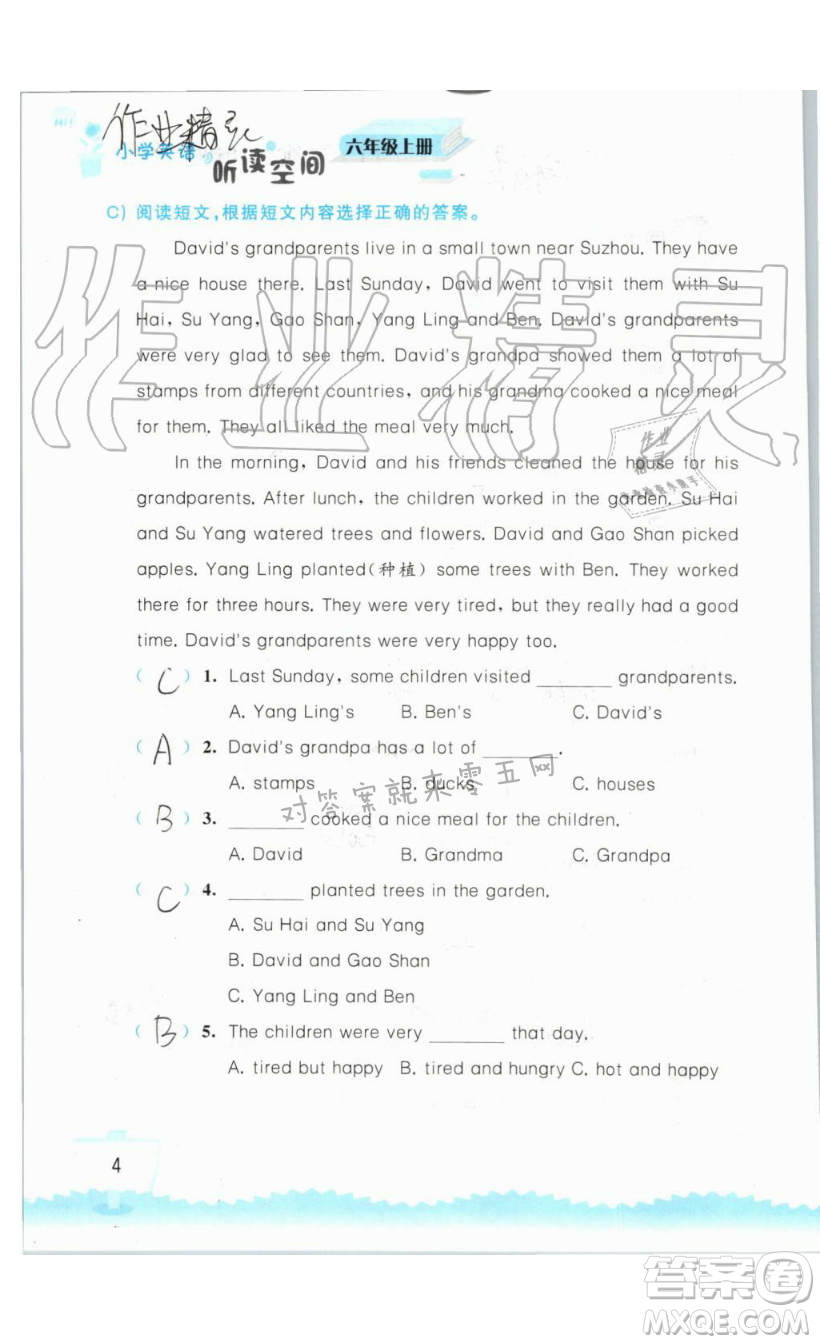 作业精灵
小学英语
听读空间
六年级上册
C) 阅读短文,根据短文内容选择正确的答案。
David's grandparents live in a small town near Suzhou. They have
a nice house there. Last Sunday, David went to visit them with Su
Hai, Su Yang, Gao Shan, Yang Ling and Ben. David's grandparents
were very glad to see them. David's grandpa showed them a lot of
stamps from different countries, and his grandma cooked a nice meal
for them. They all liked the meal very much.
In the morning, David and his friends cleaned the house for his
grandparents. After lunch, the children worked in the garden. Su Hai
and Su Yang watered trees and flowers. David and Gao Shan picked
apples. Yang Ling planted(种植) some trees with Ben. They worked
there for three hours. They were very tired, but they really had a good
time. David's grandparents were very happy too.
( C ) 1. Last Sunday, some children visited ______ grandparents.
A. Yang Ling's B. Ben's C. David's
( A ) 2. David's grandpa has a lot of ______.
A. stamps B. ducks C. houses
对答案就来零五网
( B ) 3. ______ cooked a nice meal for the children.
A. David B. Grandma C. Grandpa
( C ) 4. ______ planted trees in the garden.
A. Su Hai and Su Yang
B. David and Gao Shan
C. Yang Ling and Ben
( B ) 5. The children were very ______ that day.
A. tired but happy B. tired and hungry C. hot and happy
4
作业精灵
作业
精灵
答案卷
MXQE.COM